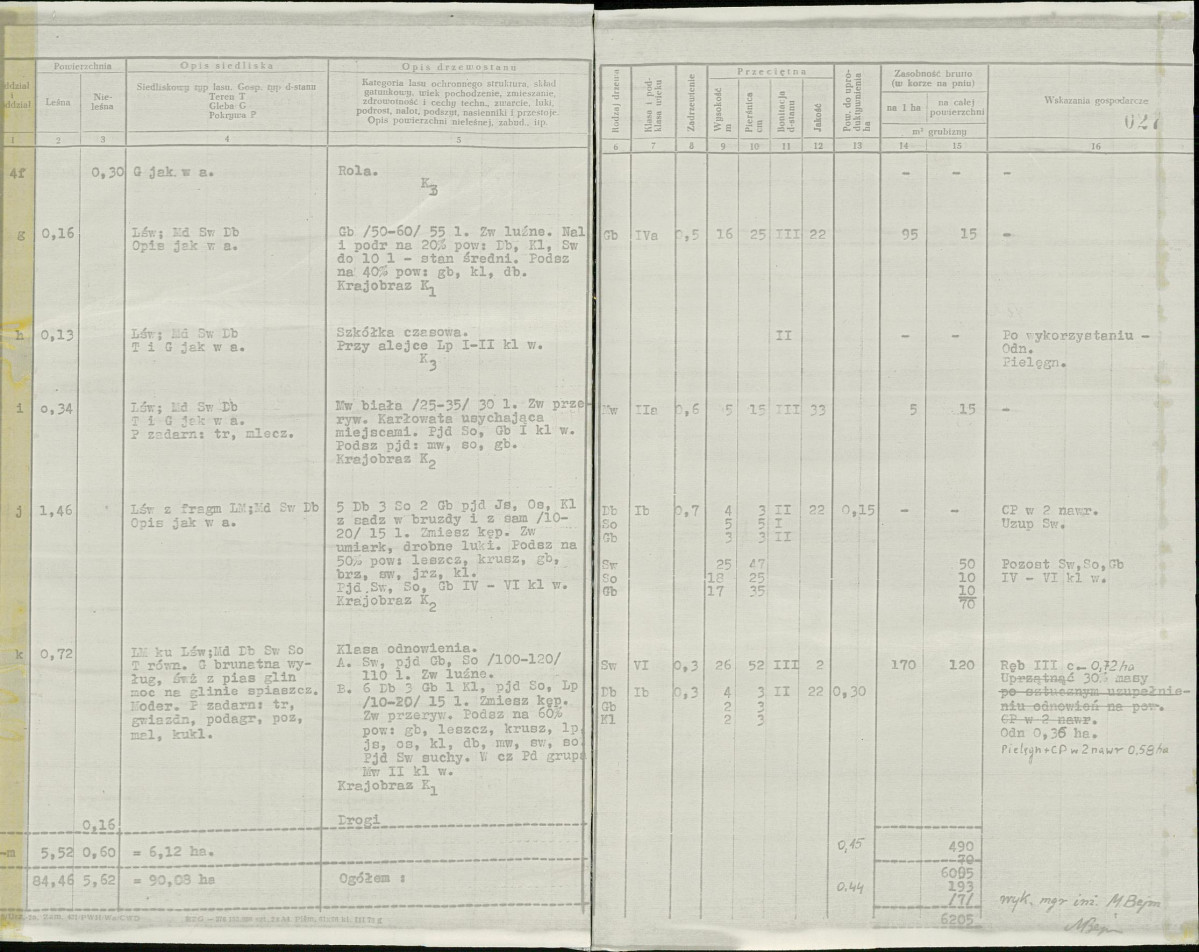 Powierzchnia
Opis siedliska
Opis drzewostanu
ddział
i
ddział
Leśna
Nie-
leśna
Siedliskowy typ lasu. Gosp. typ d-stanu
Teren T
Gleba G
Pokrywa P
Kategoria lasu ochronnego struktura, skład
gatunkowy, wiek pochodzenie, zmieszanie,
zdrowotność i cechy techn., zwarcie, luki,
podrost, nalot, podszyt, nasienniki i przestoje.
Opis powierzchni nieleśnej, zabud., itp.
1 2 3 4 5
4f 0,30 G jak w a. Rola.
K3
g 0,16 Lśw; Md Sw Db Gb /50-60/ 55 l. Zw luźne. Nal
Opis jak w a. i podr na 20% pow: Db, Kl, Sw
do 10 l - stan średni. Podsz
na 40% pow: gb, kl, db.
Krajobraz K1
h 0,13 Lśw; Md Sw Db Szkółka czasowa.
T i G jak w a. Przy alejce Lp I-II kl w.
K3
i 0,34 Lśw; Md Sw Db Mw biała /25-35/ 30 l. Zw prze-
T i G jak w a. ryw. Karłowata usychająca
P zadarn: tr, mlecz. miejscami. Pjd So, Gb I kl w.
Podsz pjd: mw, so, gb.
Krajobraz K2
j 1,46 Lśw z fragm LM;Md Sw Db 5 Db 3 So 2 Gb pjd Js, Os, Kl
Opis jak w a. z sadz w bruzdy i z sam /10-
20/ 15 l. Zmiesz kęp. Zw
umiark, drobne luki. Podsz na
50% pow: leszcz, krusz, gb,
brz, sw, jrz, kl.
Pjd Sw, So, Gb IV - VI kl w.
Krajobraz K2
k 0,72 LM ku Lśw;Md Db Sw So Klasa odnowienia.
T równ. G brunatna wy- A. Sw, pjd Gb, So /100-120/
ług, śwż z pias glin 110 l. Zw luźne.
moc na glinie spiaszcz. B. 6 Db 3 Gb 1 Kl, pjd So, Lp
Moder. P zadarn: tr, /10-20/ 15 l. Zmiesz kęp.
gwiazdn, podagr, poz, Zw przeryw. Podsz na 60%
mal, kukl. pow: gb, leszcz, krusz, lp,
js, os, kl, db, mw, sw, so.
Pjd Sw suchy. W cz Pd grupa
Mw II kl w.
Krajobraz K1
0,16 Drogi
-m 5,52 0,60 = 6,12 ha.
84,46 5,62 = 90,08 ha Ogółem :
Rodzaj drzewa
Klasa i pod-
klasa wieku
Zadrzewienie
Przeciętna
Wysokość
m
Pierśnica
cm
Bonitacja
d-stanu
Jakość
Pow. do upro-
duktywnienia
ha
Zasobność brutto
(w korze na pniu)
na 1 ha
na całej
powierzchni
m³ grubizny
Wskazania gospodarcze
6 7 8 9 10 11 12 13 14 15 16
- - -
Gb IVa 0,5 16 25 III 22 95 15 -
II - - Po wykorzystaniu -
Odn.
Pielęgn.
Mw IIa 0,6 5 15 III 33 5 15 -
Db Ib 0,7 4 3 II 22 0,15 - - CP w 2 nawr.
So 5 5 I Uzup Sw.
Gb 3 3 II
Sw 25 47 50 Pozost Sw,So,Gb
So 18 25 10 IV - VI kl w.
Gb 17 35 10
70
Sw VI 0,3 26 52 III 2 170 120 Ręb III c - 0,72 ha
Uprzątnąć 30% masy
Db Ib 0,3 4 3 II 22 0,30 po sztucznym uzupełnie-
Gb 2 3 niu odnowień na pow.
Kl 2 3 CP w 2 nawr.
Odn 0,36 ha.
Pielęgn+CP w 2 nawr 0,58 ha
0,45 490
70
6085
0.44 193
171
6205
wyk. mgr inż. M Bejm
MBejm